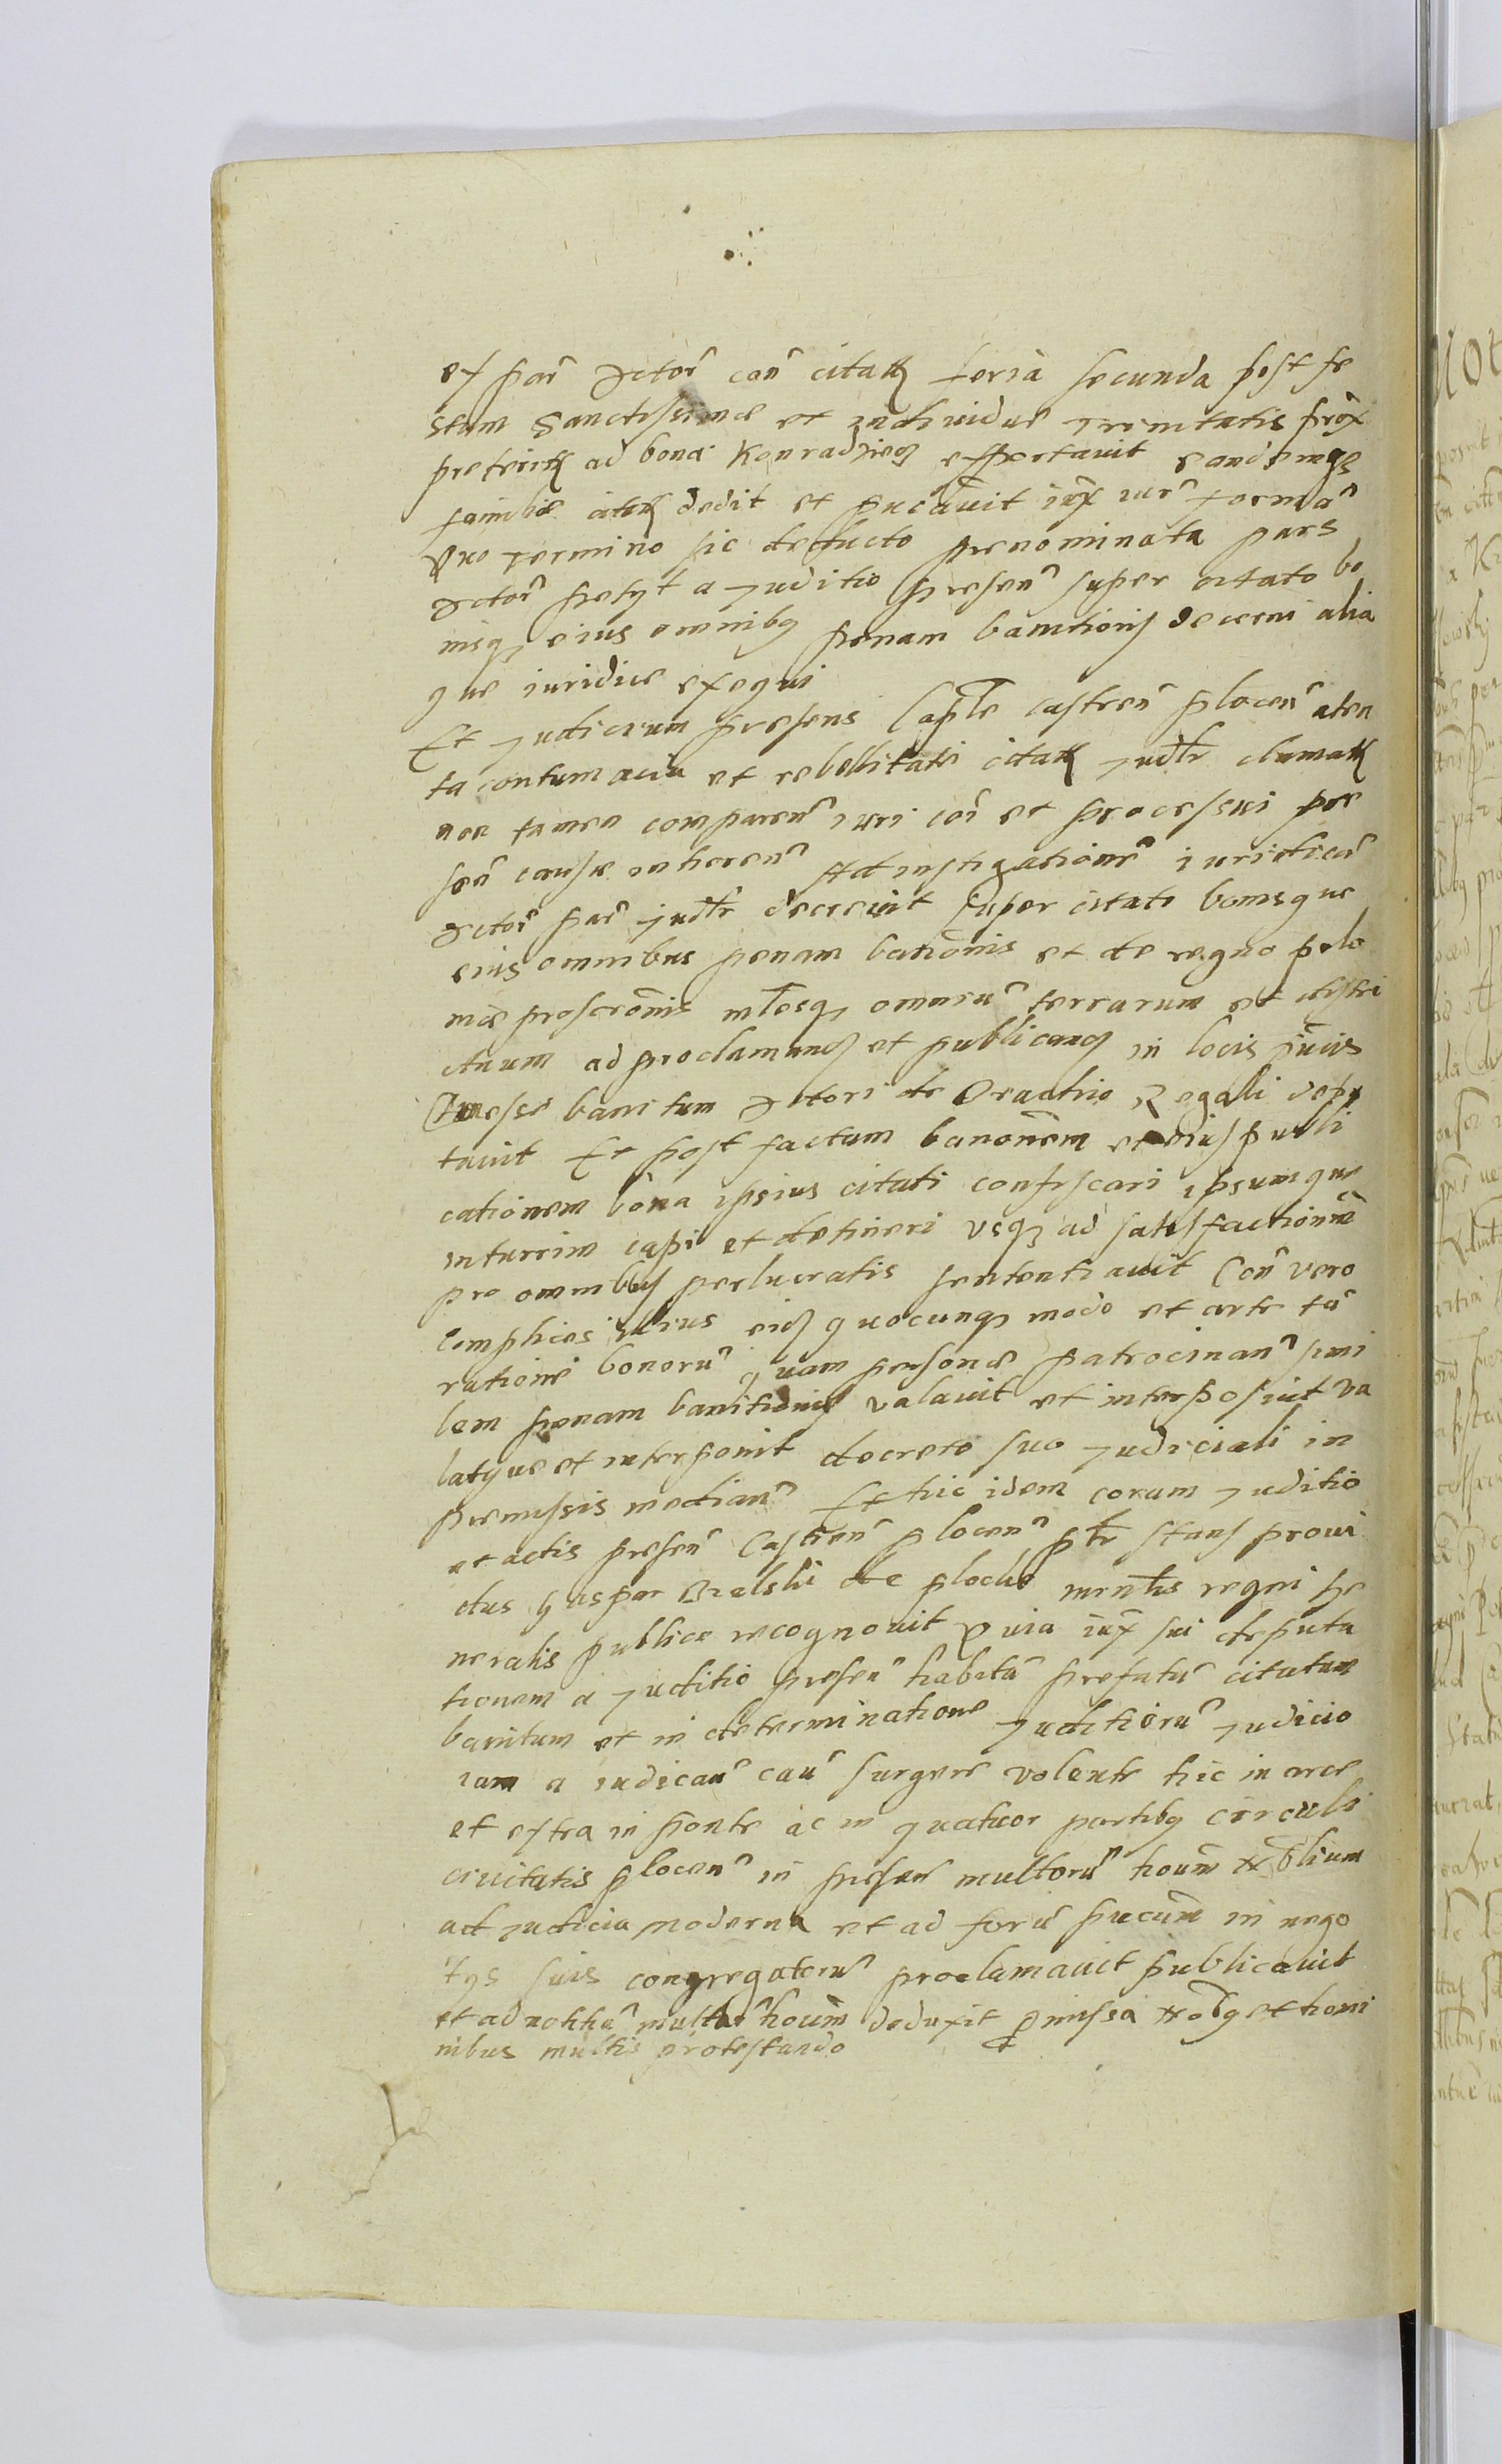 ex par actor con citatu feria secunda post fe
stum Sanctissimae et indiuiduae Trinitatis prox
preteritu ad bona Konradzieg exportauit eandemqs
familie citati dedit et pucauit iux iur forma
Quo termino sic deducto prenominata pars
actor petyt a Juditio presen super citato bo
nisq eius omnibq penam banitionis decerni alia
que iuridice exequi
Et Judicium presens Caple castren plocen aten
ta contumacia et rebellitate citati Judtr clamati
non tamen comparen iuri coi et processui pre
sen cause inheren Ad instigatione iuridica
actor par Judtr decreuit super citato bonisque
eius omnibus penam bationis et de regno polo
niae proscronis mlosq omniu terrarum et distri
ctuum ad proclamand et publicand in locis pucis
Quu esse banitum actori de Oraculo Regali depu
tauit Et post factam banonem et eius publi
cationem bona ipsius citati confiscari ipsumque
in turrim capi et detineri vsq ad satisfactionem
pro omnibus perlucratis sententiauit Con vero
complices illius eid quocunq modo et arte ta
ratione bonoru quam persone patrocinan simi
lem penam banitionis valauit et interposuit va
latque et interponit decreto suo Judiciali in
premissis median Et hic idem coram Juditio
et actis presen Castren plocen ptr stans proui
dus Gaspar Bielski de plocko mintlis regni ge
neralis publice recognouit Quia iux sui deputa
tionem a Juditio presen habita prefatu citatum
banitum et in determinatione Juditioru Judicio
iam a iudican cau surgere volente hic in arce
et extra in ponte ac in quatuor partibq circuli
ciuitatis plocen in presen multoru houm nobilium
ad Judicia moderna et ad foru pucum in nego
tys suis congregatoru proclamauit publicauit
et ad notitia multar houm deduxit pmissa nobq et homi
nibus multis protestando